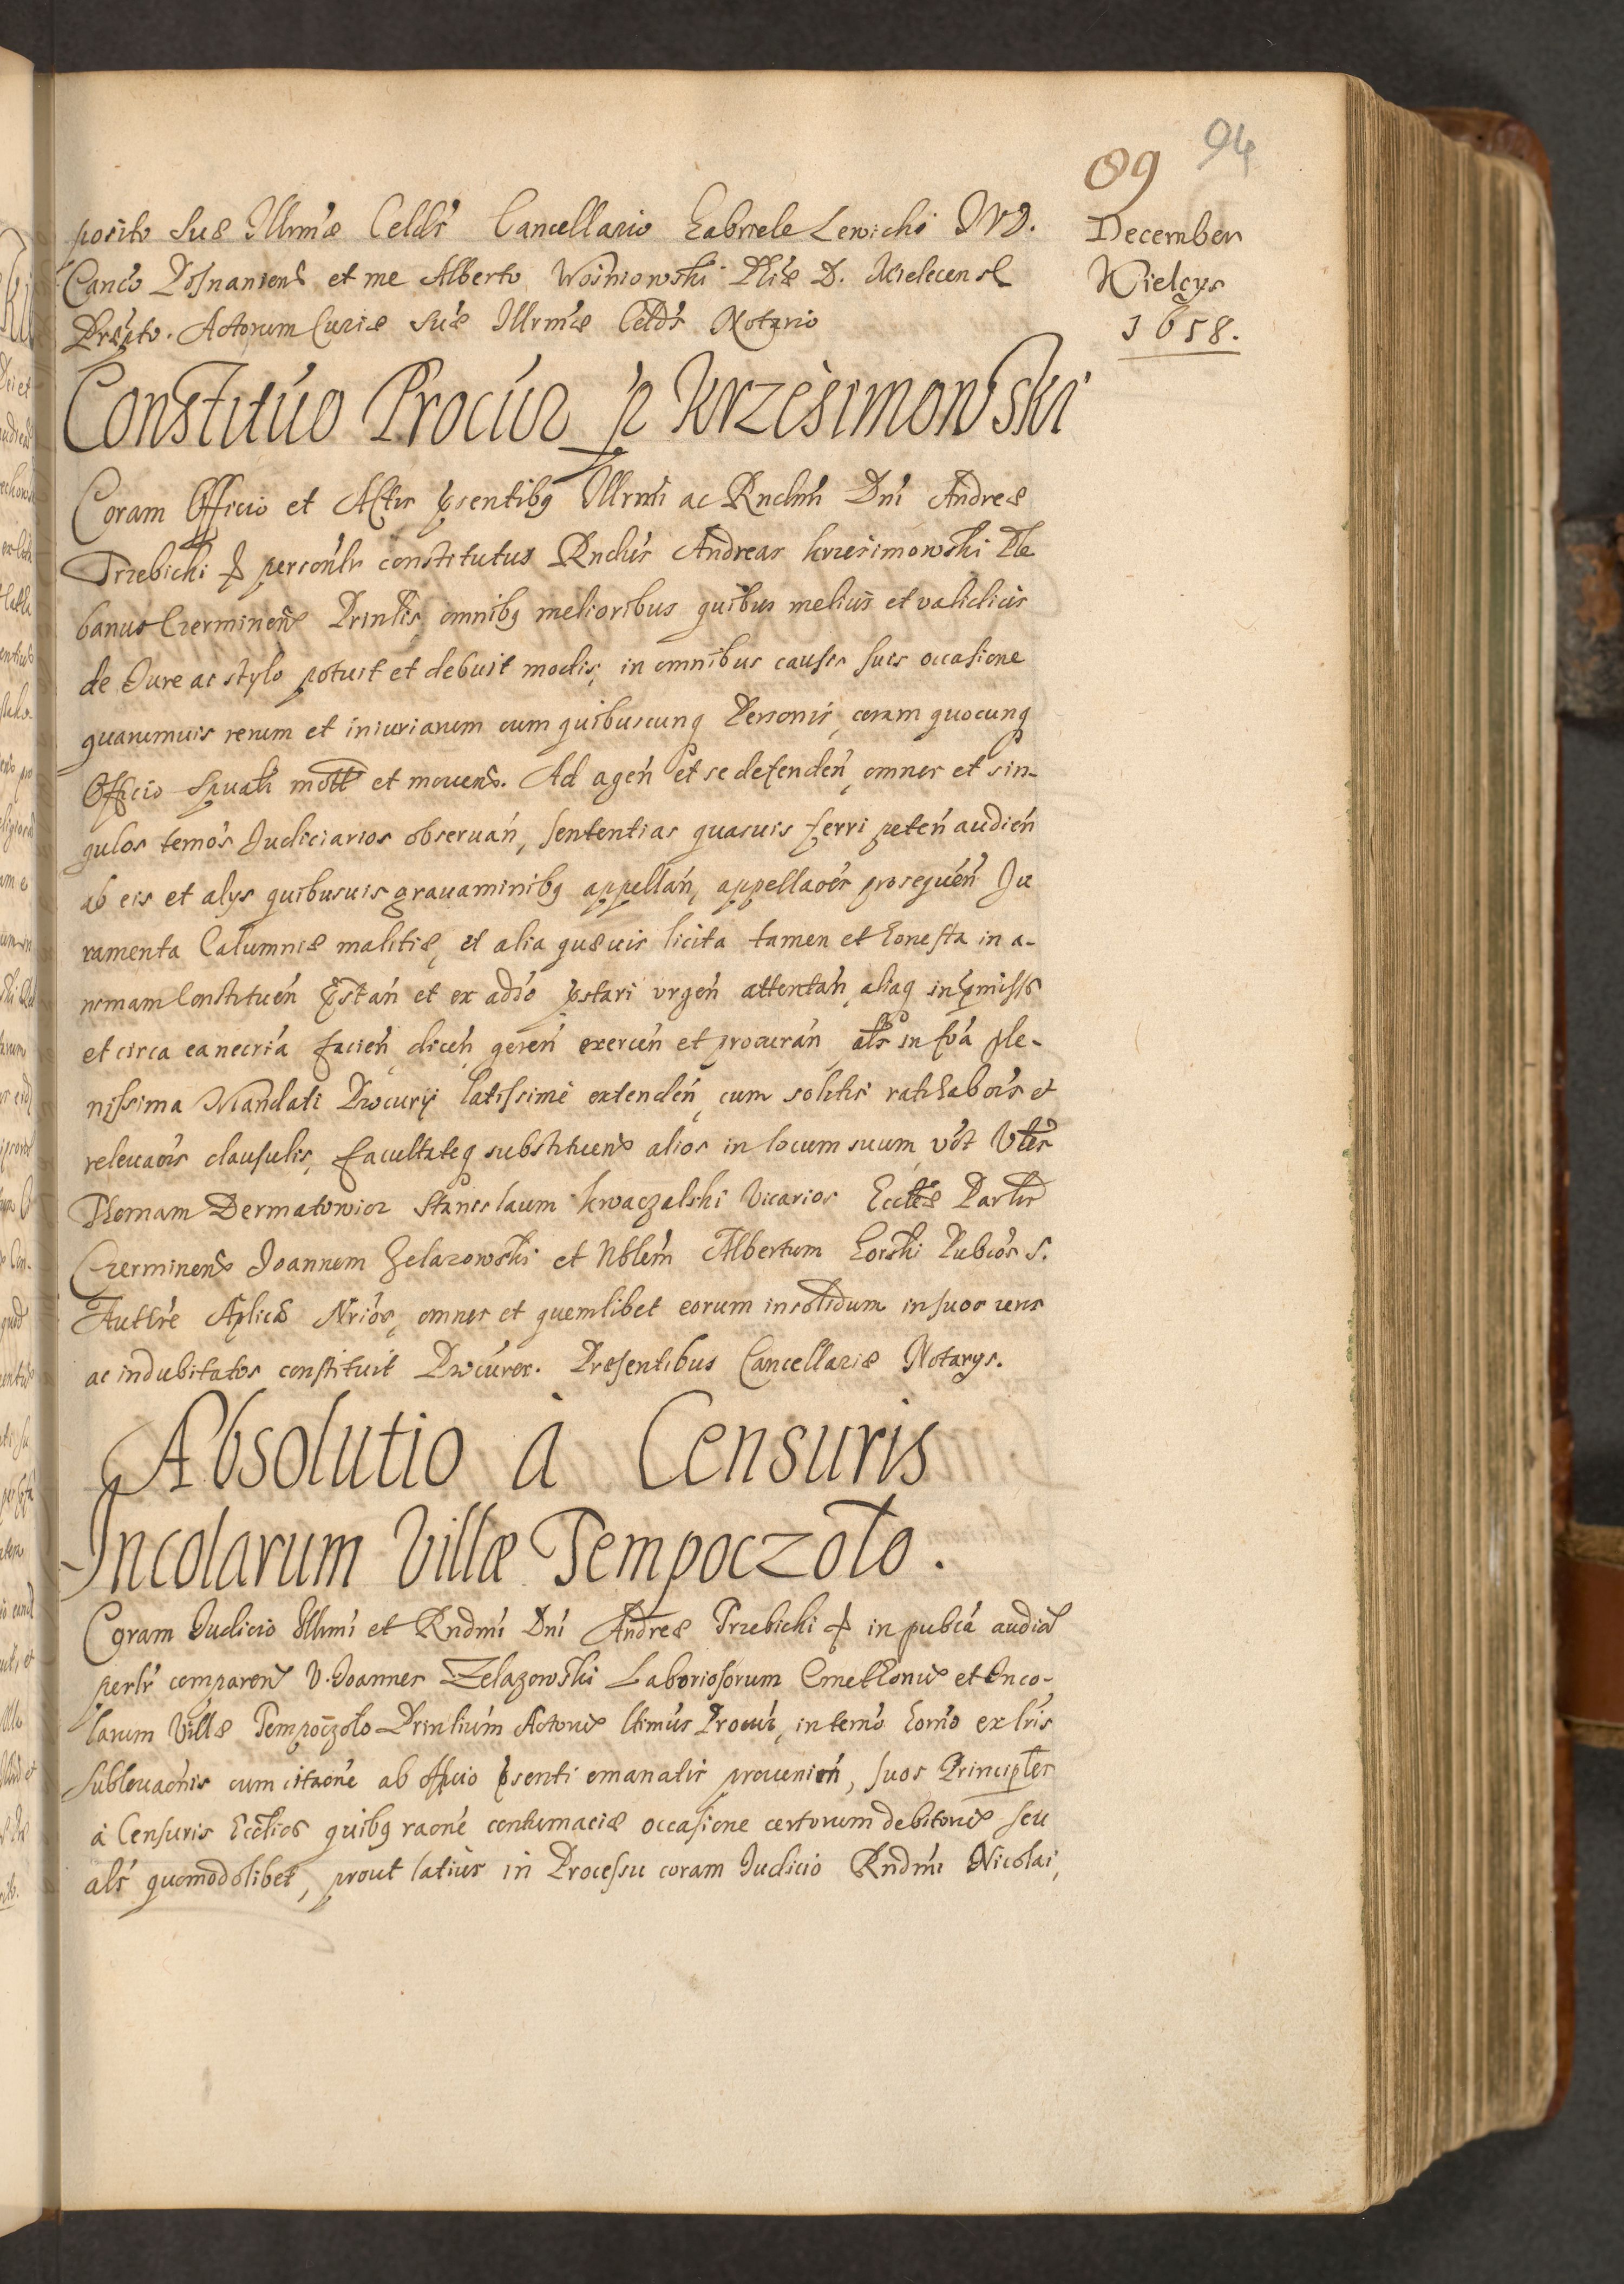 89 94
December
Kielcys
1658.
posito Suæ Illrmæ Celdis Cancellario Gabriele Lewicki JVD.
Canco Posnaniens et me Alberto Wosniowski Phiæ D. Mielecens
Præpto. Actorum Curiæ Suæ Illrmæ Celds Notario
Constituo Procuor p Krzesimowski
Coram Officio et Actis psentibq Illrmi ac Rndmi Dni Andreæ
Trzebicki & personlr constitutus Rndus Andreas krzesimowski Ple
banus Czerminen Prinlis, omnibq melioribus quibus melius et validius
de Jure ac stylo potuit et debuit modis, in omnibus causis suis occasione
quarumuis rerum et iniuriarum cum quibuscunq Personis, coram quocunq
Officio Spuali mott et mouens. Ad agen et se defenden, omnes et sin-
gulos temos Judiciarios obseruan, sententias quasuis ferri peten audien
ab eis et alys quibusuis grauaminibq appellan, appellaoes prosequen Ju
ramenta Calumniæ malitiæ, et alia quæuis licita tamen et honesta in a-
nimam Constituen pstan et ex addo pstari vrgen attentan, aliaq in pmissis
et circa ea necria facien, dicen, geren exercen et procuran, als in foa ple-
nissima Mandati Procurij latissime extenden, cum solitis ratihabois et
releuaois clausulis, facultateq substituens alios in locum suum, vdt Vbles
Thomam Dermatowicz Stanislaum kwaczalski Vicarios Ecclæ Parlis
Czerminens Joannem Zelazowski et Nblem Albertum Gorski Pubcos S.
Authre Aplica Nrios, omnes et quemlibet eorum insolidum in suos veros
ac indubitatos constituit Procures. Præsentibus Cancellariæ Notarys.
Absolutio à Censuris
Incolarum Villæ Tempoczoło.
Coram Judicio Illmi et Rndmi Dni Andreæ Trzebicki & in pubca audia
perlr comparens V. Joannes Zelazowski Laboriosorum Cmethonum et Inco-
larum Villæ Tempoczolo Prinlium Actorum ltimus Procur, in temo homo ex lris
subleuaonis cum citaone ab officio psenti emanatis prouenien, suos Principles
à Censuris Ecclicis quibq raone contumaciæ occasione certorum debitorum seu
als quomodolibet, prout latius in Processu coram Judicio Rndmi Nicolai,